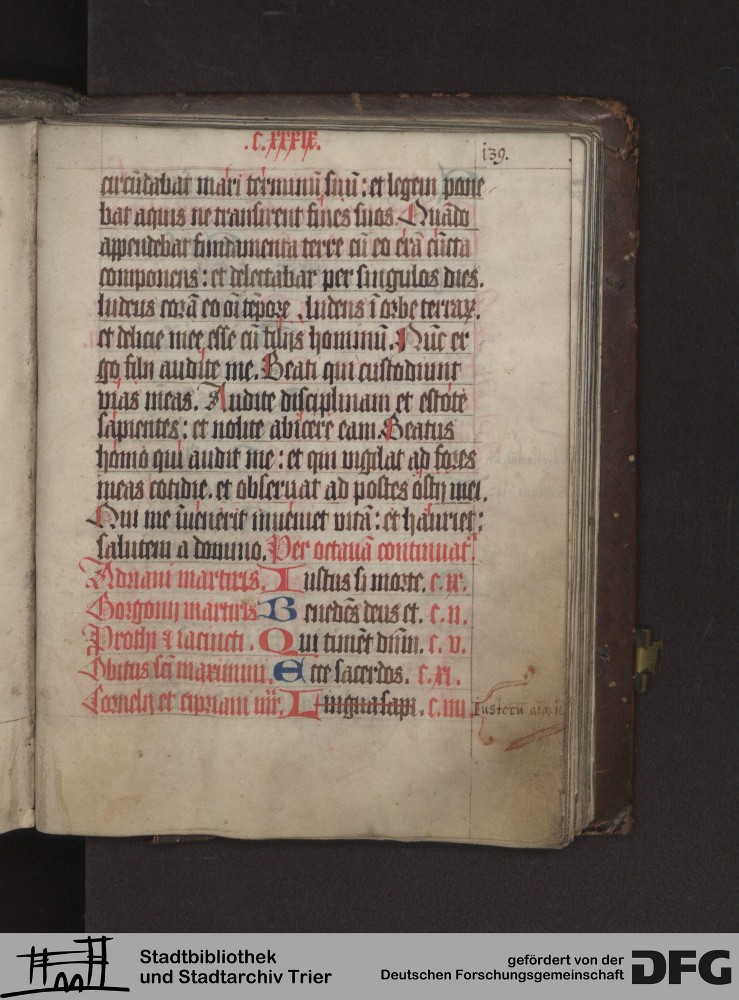 .C.XXXIX.
139.
circūdabat mari terminū suū : et legem pone
bat aquis ne transirent fines suos. Quādo
appendebat fundamenta terre cū eo erā cūcta
componens : et delectabar per singulos dies.
ludens corā eo oī tēpore . ludens ī orbe terraꝝ.
et delicie mee esse cū filijs hominū. Nūc er
go filij audite me. Beati qui custodiunt
vias meas. Audite disciplinam et estote
sapientes : et nolite abicere eam. Beatus
homo qui audit me : et qui vigilat ad fores
meas cotidie . et obseruat ad postes ostij mei.
Qui me īuenerit inueniet vitā : et hauriet :
salutem a domino. Per octauā continuat᷑
Adriani martiris. Iustus si morte. c. ix.
Gorgonij martiris Benedc̄s deus et. c. ii.
Prothi et iacincti . Qui timēt dn̄m. c. v.
Obitus sc̄i maximini. Ecce sacerdos. c. xi.
Cornelij et cipriani Lingua sapi. c. iiii
Iustorū aīae
Stadtbibliothek
und Stadtarchiv Trier
gefördert von der
Deutschen Forschungsgemeinschaft
DFG